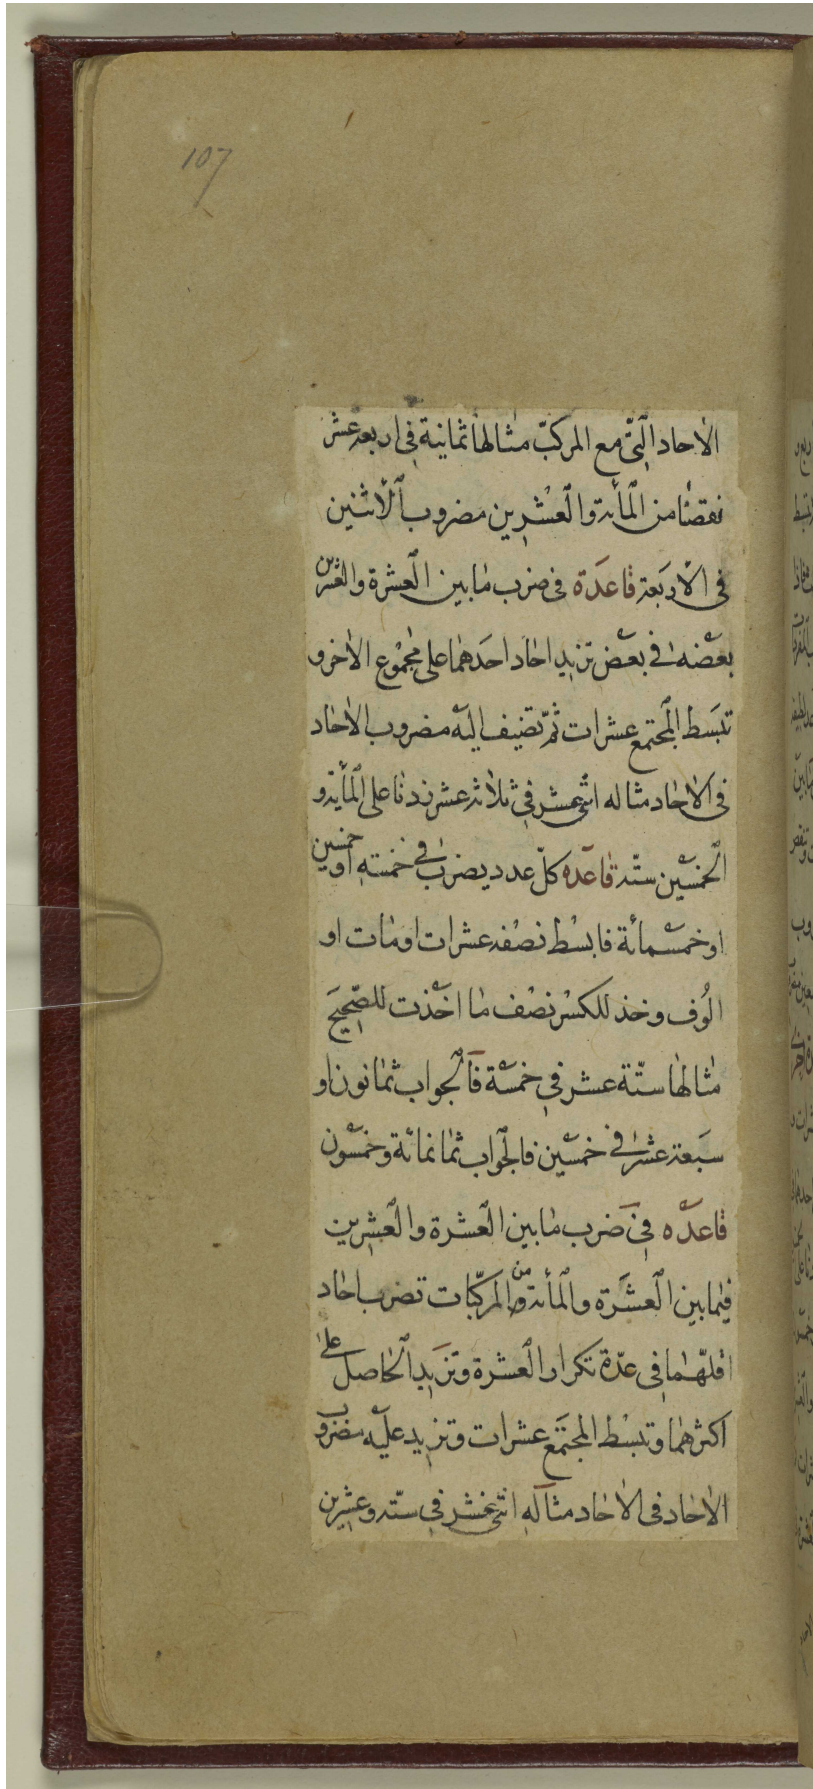 107
الاحاد التى مع المركب مثالها ثمانية فى اربعة عشر
نقصنا من المأة والعشرين مضروب الاثنين
فى الاربعة قاعدة فى ضرب ما بين العشرة والعشرين
بعضها فى بعض تزيد احاد احدهما على مجموع الاخر و
تبسط المجتمع عشرات ثمّ تضيف اليه مضروب الاحاد
فى الاحاد مثاله اثنى عشر فى ثلاثة عشر زدنا على المأية و
الخمسين ستة قاعده كلّ عدد يضرب فى خمسة او خمسين
او خمسمائة فابسط نصفه عشرات او مات او
الوف وخذ للكسر نصف ما اخذت للصّحيح
مثالها ستّة عشر فى خمسة فالجواب ثمانون او
سبعة عشر فى خمسين فالجواب ثمانمائة وخمسون
قاعده فى ضرب ما بين العشرة والعشرين
فيما بين العشرة والمأة من المركّبات تضرب احاد
اقلّهما فى عدّة تكرار العشرة وتزيد الحاصل على
اكثرهما وتبسط المجتمع عشرات وتزيد عليه مضروب
الاحاد فى الاحاد مثاله اثنى عشر فى ستّة وعشرين